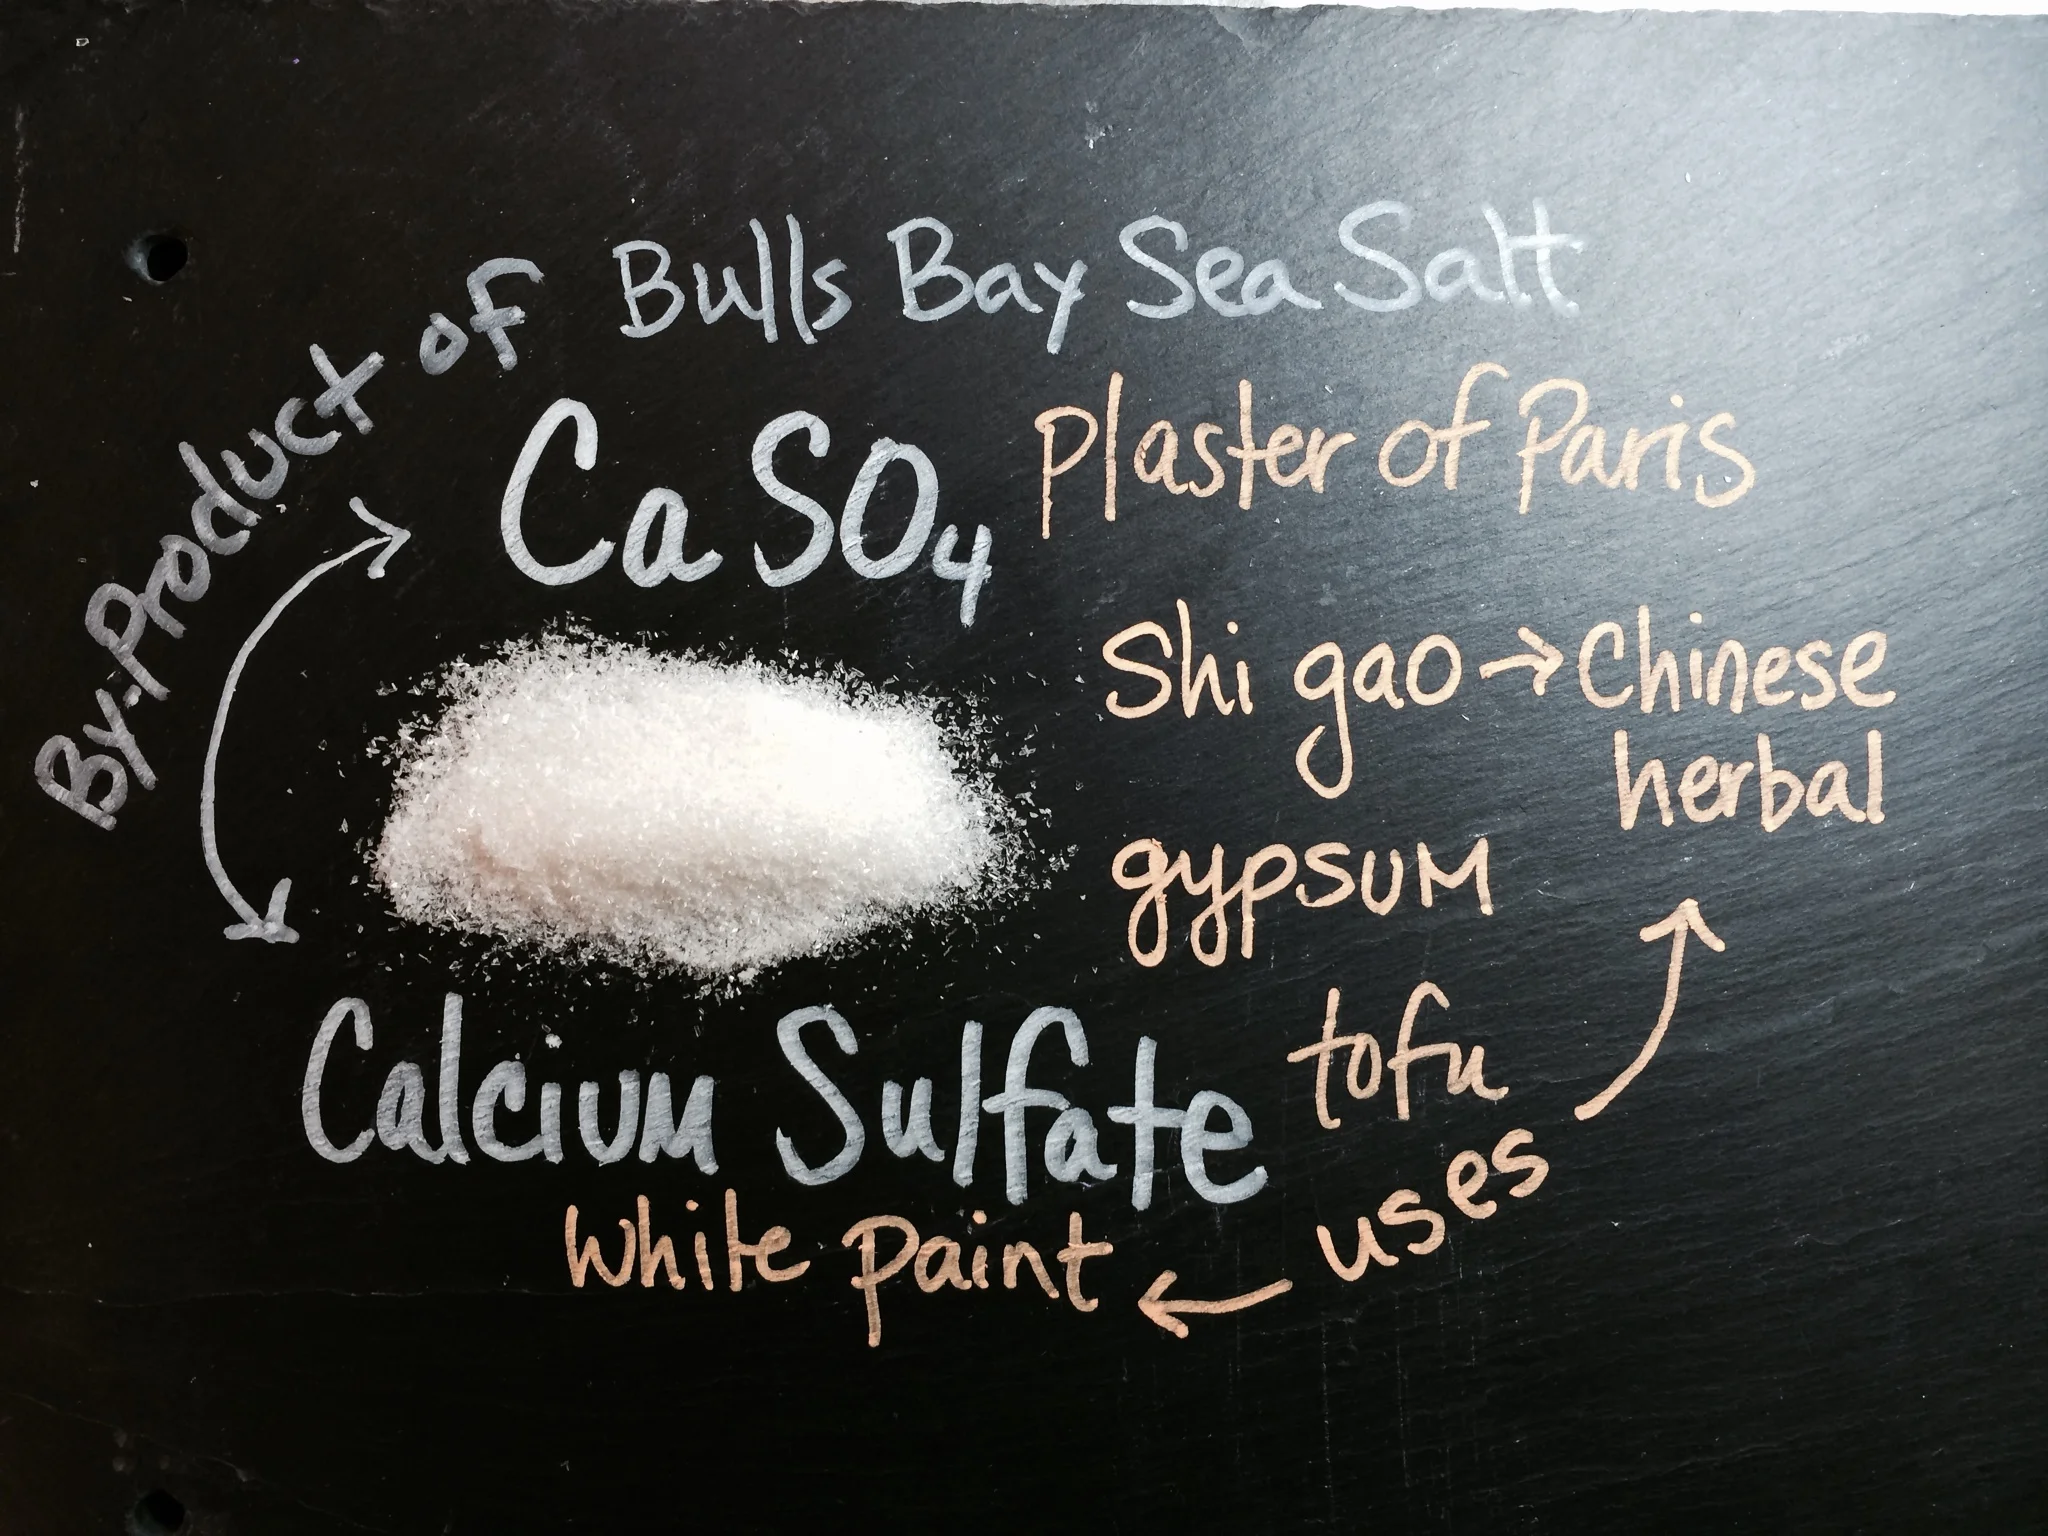 By-Product of Bulls Bay Sea Salt
CaSO₄
Plaster of Paris
Shi gao → Chinese
herbal
gypsum
Calcium Sulfate
tofu
uses
White paint